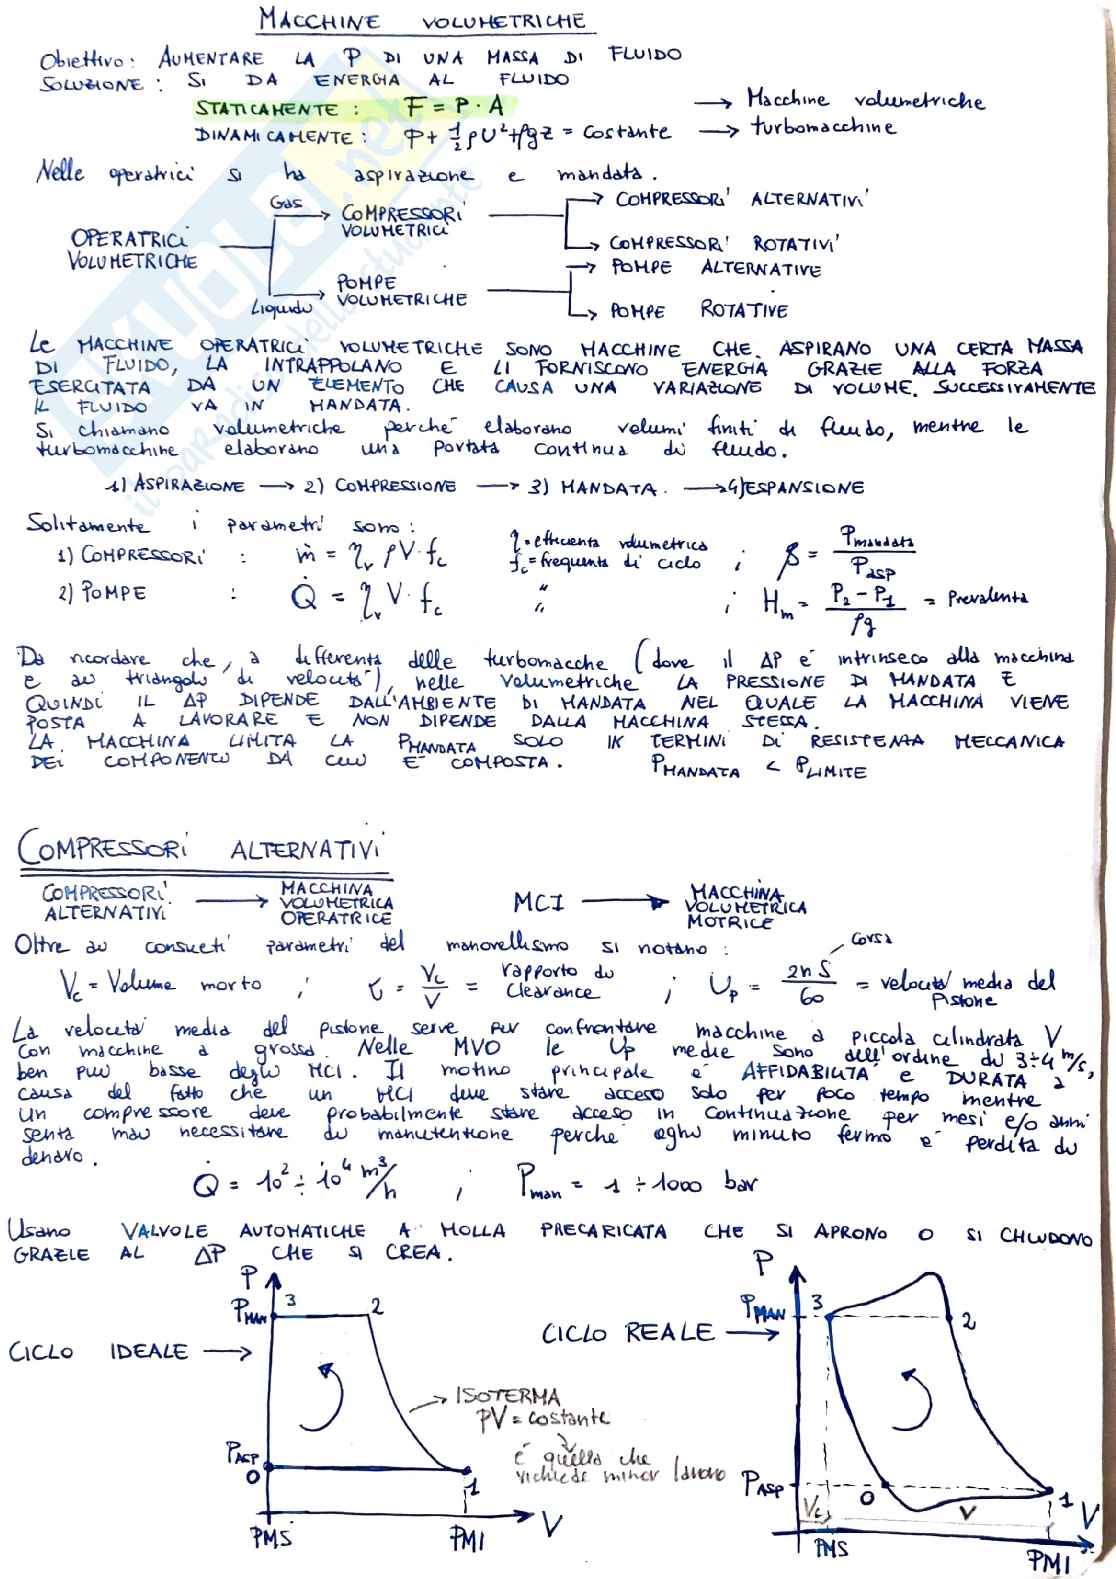 MACCHINE VOLUMETRICHE
Obiettivo: AUMENTARE LA P DI UNA MASSA DI FLUIDO
SOLUZIONE: SI DA ENERGIA AL FLUIDO
STATICAMENTE: F = P · A → Macchine volumetriche
DINAMICAMENTE: P + 1/2 ρU² + ρgz = costante → turbomacchine
Nelle operatrici si ha aspirazione e mandata.
OPERATRICI VOLUMETRICHE
Gas → COMPRESSORI VOLUMETRICI → COMPRESSORI ALTERNATIVI
→ COMPRESSORI ROTATIVI
Liquido → POMPE VOLUMETRICHE → POMPE ALTERNATIVE
→ POMPE ROTATIVE
Le MACCHINE OPERATRICI VOLUMETRICHE SONO MACCHINE CHE ASPIRANO UNA CERTA MASSA
DI FLUIDO, LA INTRAPPOLANO E LI FORNISCONO ENERGIA GRAZIE ALLA FORZA
ESERCITATA DA UN ELEMENTO CHE CAUSA UNA VARIAZIONE DI VOLUME. SUCCESSIVAMENTE
IL FLUIDO VA IN MANDATA.
Si chiamano volumetriche perché elaborano volumi finiti di fluido, mentre le
turbomacchine elaborano una portata continua di fluido.
1) ASPIRAZIONE → 2) COMPRESSIONE → 3) MANDATA. → 4) ESPANSIONE
Solitamente i parametri sono:
1) COMPRESSORI : ṁ = ηv ρV · fc η = efficienza volumetrica fc = frequenza di ciclo ; β = Pmandata / PASP
2) POMPE : Q̇ = ηv V · fc " " ; Hm = P2 - P1 / ρg = Prevalenza
Da ricordare che, a differenza delle turbomacche (dove il ΔP è intrinseco alla macchina
e ai triangoli di velocità), nelle volumetriche LA PRESSIONE DI MANDATA E
QUINDI IL ΔP DIPENDE DALL'AMBIENTE DI MANDATA NEL QUALE LA MACCHINA VIENE
POSTA A LAVORARE E NON DIPENDE DALLA MACCHINA STESSA.
LA MACCHINA LIMITA LA PMANDATA SOLO IN TERMINI DI RESISTENZA MECCANICA
DEI COMPONENTI DA CUI E' COMPOSTA. PMANDATA < PLIMITE
COMPRESSORI ALTERNATIVI
COMPRESSORI ALTERNATIVI → MACCHINA VOLUMETRICA OPERATRICE MCI → MACCHINA VOLUMETRICA MOTRICE
Oltre ai consueti parametri del manovellismo si notano:
Vc = Volume morto ; τ = Vc / V = rapporto di Clearance ; Up = 2nS / 60 = velocità media del pistone
corsa
La velocità media del pistone serve per confrontare macchine a piccola cilindrata V
con macchine a grossa. Nelle MVO le Up medie sono dell'ordine di 3÷4 m/s,
ben più basse degli MCI. Il motivo principale è AFFIDABILITÀ e DURATA a
causa del fatto che un MCI deve stare acceso solo per poco tempo mentre
un compressore deve probabilmente stare acceso in continuazione per mesi e/o anni
senza mai necessitare di manutenzione perché ogni minuto fermo è perdita di
denaro.
Q̇ = 10² ÷ 10⁴ m³/h ; Pman = 1 ÷ 1000 bar
Usano VALVOLE AUTOMATICHE A MOLLA PRECARICATA CHE SI APRONO O SI CHIUDONO
GRAZIE AL ΔP CHE SI CREA.
CICLO IDEALE →
P
PMAN 3 2
ISOTERMA
pV = costante
è quella che
richiede minor lavoro
PASP 0 1
V
PMS PMI
CICLO REALE →
P
PMAN 3 2
PASP 0 1
Vc V V
PMS PMI
skuola.net
il paradiso dello studente